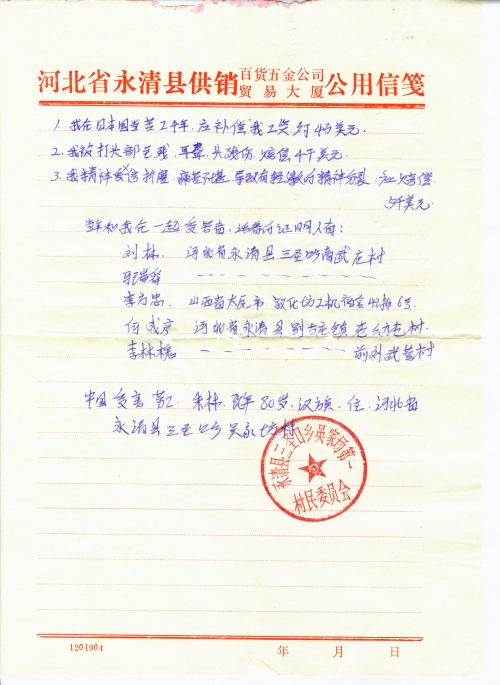 河北省永清县供销百货五金公司贸易大厦公用信笺
1. 我在日本国当苦工年, 应补偿我工资, 约4万美元.
2. 我被打头部至残, 耳聋, 头残伤, 赔偿4千美元.
3. 我精神受折磨, 痛苦不堪, 导致有轻微的精神分裂, 应赔偿
5千美元.
当年和我在一起受害者, 还活着的证明人有:
刘林. 河北省永清县三圣口乡南武庄村
李方忠. 山西省太原市敦化坊
何 河北省永清县别古庄镇老幼屯村
李林槐 前刘武营村
中国受害劳工 朱林. 现年80岁, 汉族, 住河北省
永清县三圣口乡吴家场村
永清县三圣口乡吴家场第一
村民委员会
1201904 年 月 日